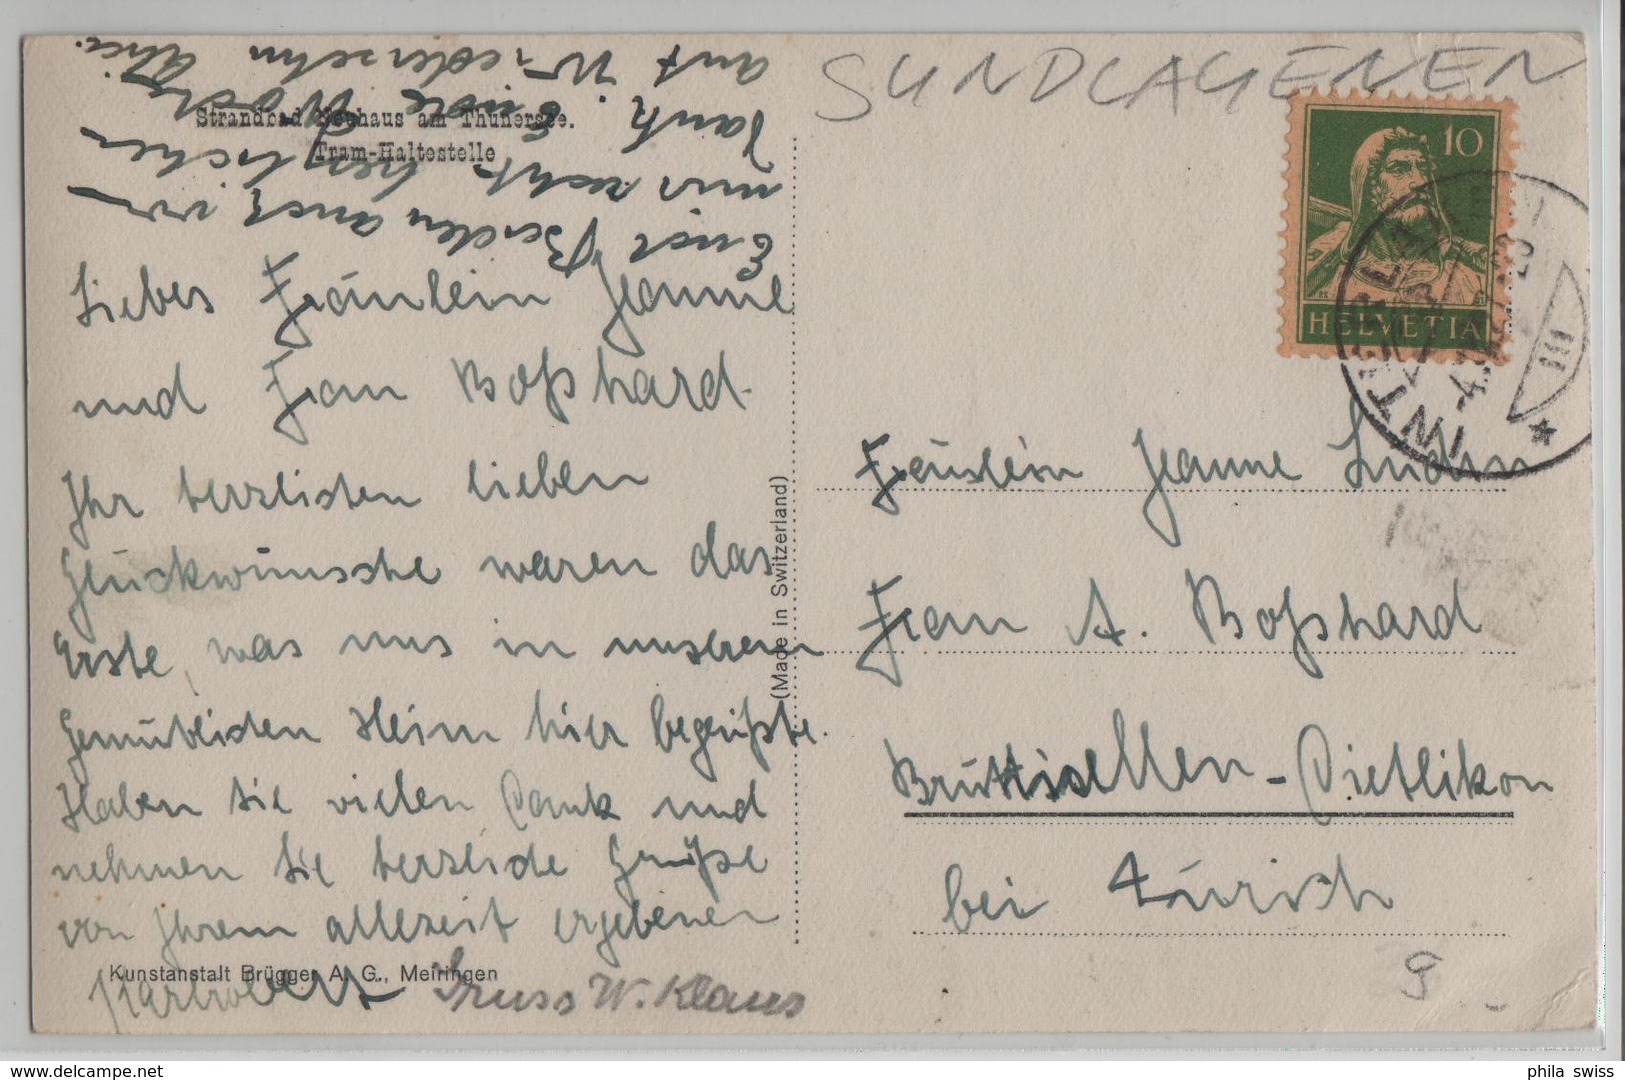 SUNDLAUENEN
Strandbad Neuhaus am Thunersee.
Tram-Haltestelle
Euch Beiden auch von
mir recht herzlichen
Dank. Ende Woche
auf Wiedersehn Alice.
Liebes Fräulein Jeanne
und Frau Boßhard.
Ihr herzlichen lieben
Glückwünsche waren das
Erste, was uns in unserem
Gemütlichen Heim hier begrüßte.
Haben Sie vielen Dank und
nehmen Sie herzliche Grüße
von Ihrem allezeit ergebenen
Karl Robert
Gruss W. Klaus
Kunstanstalt Brügger A. G., Meiringen
(Made in Switzerland)
10
HELVETIA
INTERLAKEN
III
Fräulein Jeanne
Frau A. Boßhard
Brüttisellen-Dietlikon
bei Zürich
9
delcampe.net
phila_swiss